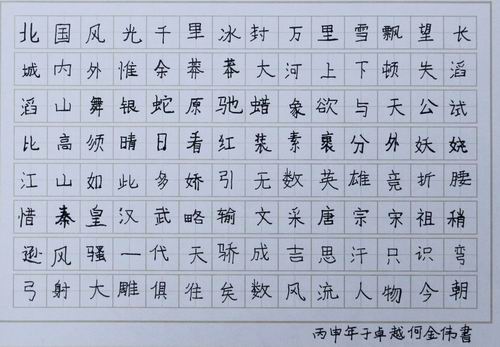 北国风光千里冰封万里雪飘望长
城内外惟余莽莽大河上下顿失滔
滔山舞银蛇原驰蜡象欲与天公试
比高须晴日看红装素裹分外妖娆
江山如此多娇引无数英雄竞折腰
惜秦皇汉武略输文采唐宗宋祖稍
逊风骚一代天骄成吉思汗只识弯
弓射大雕俱往矣数风流人物今朝
丙申年于卓越何金伟書